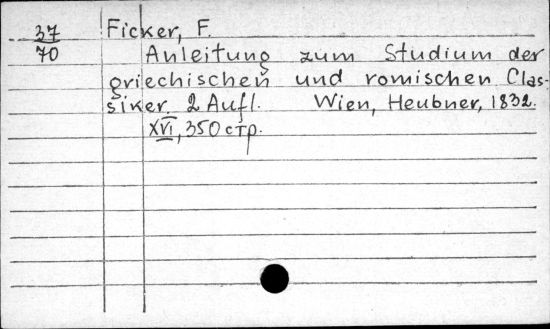 37 Ficker, F.
70 Anleitung zum Studium der
griechischen und romischen Clas-
siker. 2 Aufl. Wien, Heubner, 1832.
XVI, 350 стр.